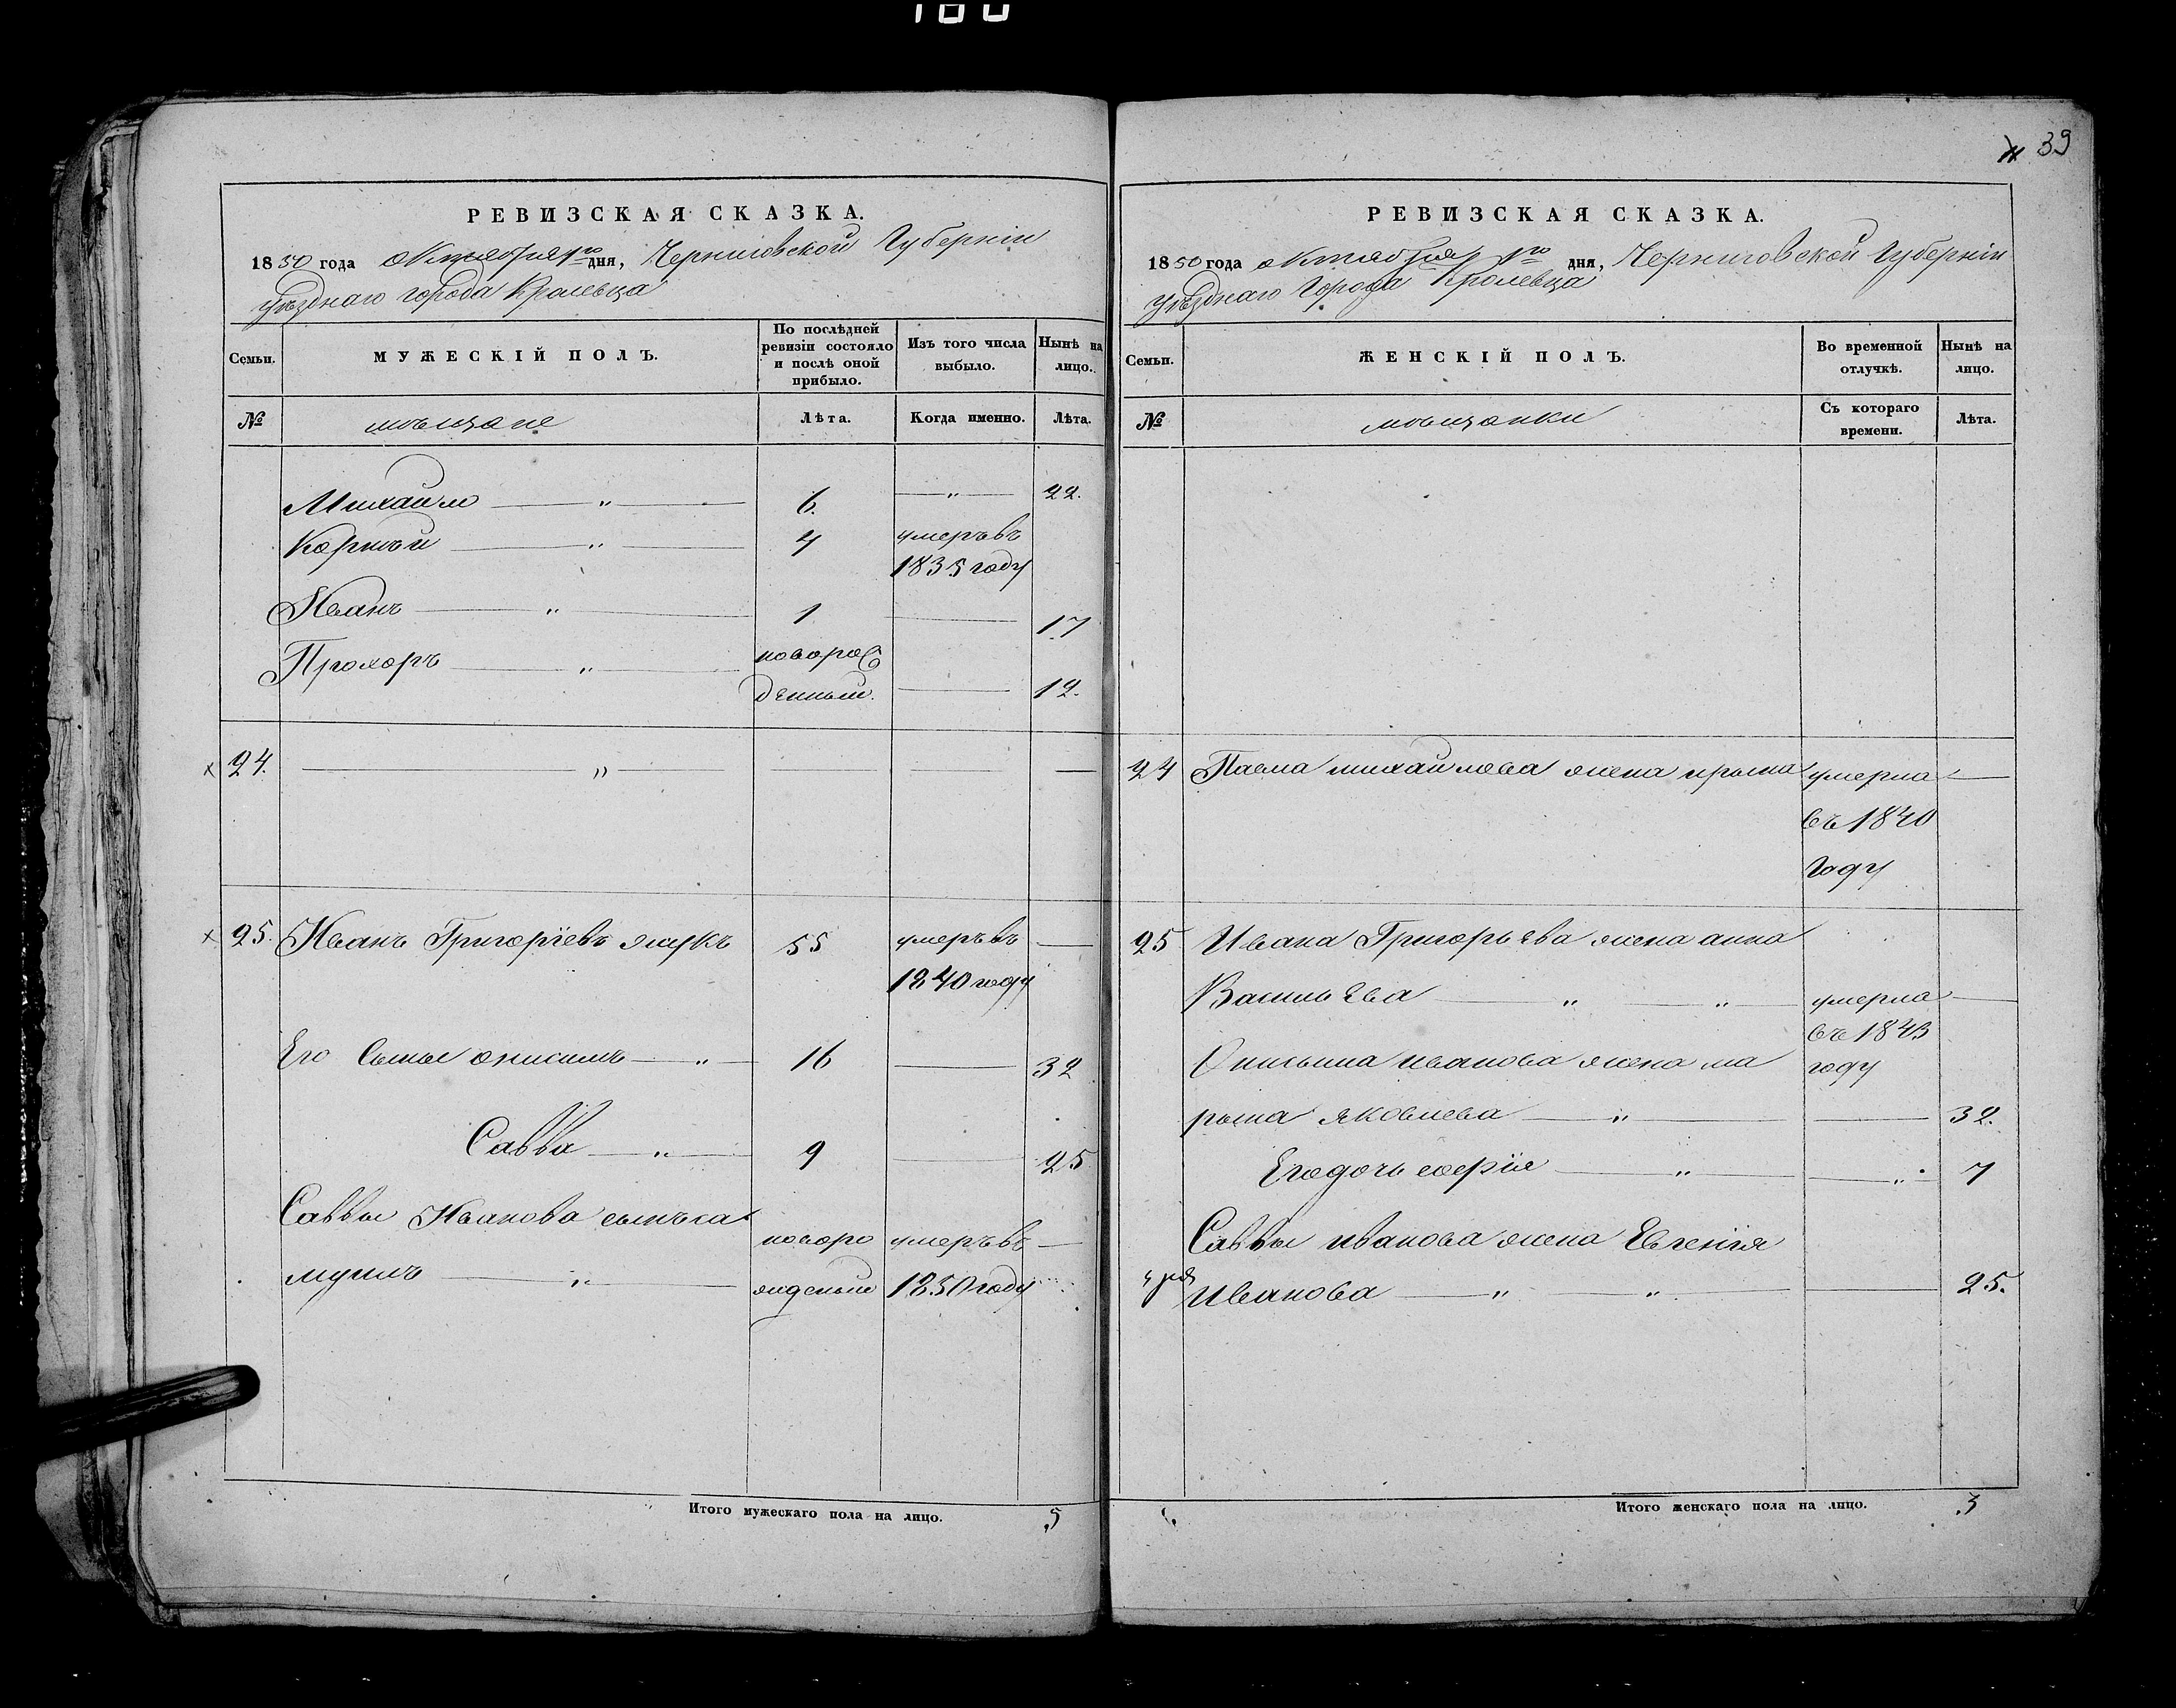 188
РЕВИЗСКАЯ СКАЗКА.
1850 года октября 1го дня, Черниговской Губерніи
уѣзднаго города Кролевца
Семьи. МУЖЕСКІЙ ПОЛЪ. По послѣдней ревизіи состояло и послѣ оной прибыло. Изъ того числа выбыло. Нынѣ на лицо.
№ мѣщане Лѣта. Когда именно. Лѣта.
Михаилъ — " — 6. — " — 22.
Корнѣй — " — 4 умеръ въ
1835 году
Иванъ — " — 1 — 17
Прохоръ — " — новорож
денный. — 12.
24. — " — — — —
25. Иванъ Григорїевъ 55 умеръ въ —
1840 году
Его Сыны онисимъ — " — 16 — 32
Савва — " — 9 — 25
Саввы Иванова сынъ са
новоро умеръ въ —
муилъ — " — жденный 1850 году
Итого мужескаго пола на лицо. 5
39
РЕВИЗСКАЯ СКАЗКА.
1850 года октября 1го дня, Черниговской Губерніи
уѣзднаго Города Кролевца
Семьи. ЖЕНСКІЙ ПОЛЪ. Во временной отлучкѣ. Нынѣ на лицо.
№ мѣщанки Съ котораго времени. Лѣта.
24 Павла михайлова жена умерла —
въ 1840
Году
25 Ивана Григорьева жена анна
Васильева — " — " — умерла —
въ 1843
Онисима иванова жена ма году
рыша яковлева — " — — 32.
Его дочь софія — " — — " — 7
Саввы иванова жена Евгенїя
Иванова — " — " — — 25.
Итого женскаго пола на лицо. 3